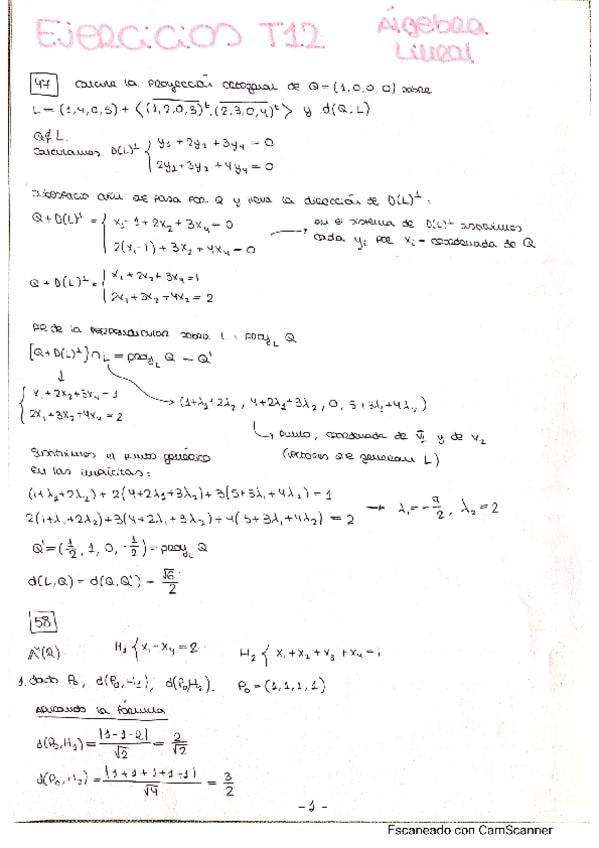 EJERCICIOS T12 Álgebra
Lineal
47 Calcule la proyección ortogonal de Q=(1,0,0,0) sobre
L=(1,4,0,5)+⟨(1,2,0,3)ᵗ,(2,3,0,4)ᵗ⟩ y d(Q,L)
Q∉L
Calculamos D(L)⊥ { y₁+2y₂+3y₄=0
2y₁+3y₂+4y₄=0
Subespacio afín que pasa por Q y lleva la dirección de D(L)⊥:
Q+D(L)⊥ = { x₁-1+2x₂+3x₄=0
2(x₁-1)+3x₂+4x₄=0
→ en el sistema de D(L)⊥ sustituimos
cada yᵢ por xᵢ - coordenada de Q
Q+D(L)⊥ = { x₁+2x₂+3x₄=1
2x₁+3x₂+4x₂=2
Pie de la perpendicular sobre L: proy_L Q
[Q+D(L)⊥]∩L = proy_L Q = Q'
{ x₁+2x₂+3x₄=1
2x₁+3x₂+4x₄=2
→ (1+λ₁+2λ₂, 4+2λ₁+3λ₂, 0, 5+3λ₁+4λ₂)
↳ punto, coordenada de v₁ y de v₂
(vectores que generan L)
Sustituimos el punto genérico
en las implícitas:
(1+λ₁+2λ₂)+2(4+2λ₁+3λ₂)+3(5+3λ₁+4λ₂)=1
2(1+λ₁+2λ₂)+3(4+2λ₁+3λ₂)+4(5+3λ₁+4λ₂)=2 → λ₁=-9/2, λ₂=2
Q'=(1/2,1,0,-1/2)=proy_L Q
d(L,Q)=d(Q,Q')=√6/2
58
H₁ { x₁-x₄=2 H₂ { x₁+x₂+x₃+x₄=1
1. dato P₀, d(P₀,H₁), d(P₀,H₂). P₀=(1,1,1,1)
Aplicando la fórmula
d(P₀,H₁)=|1-1-2|/√2=2/√2
d(P₀,H₂)=|1+1+1+1-1|/√4=3/2
-1-
Escaneado con CamScanner